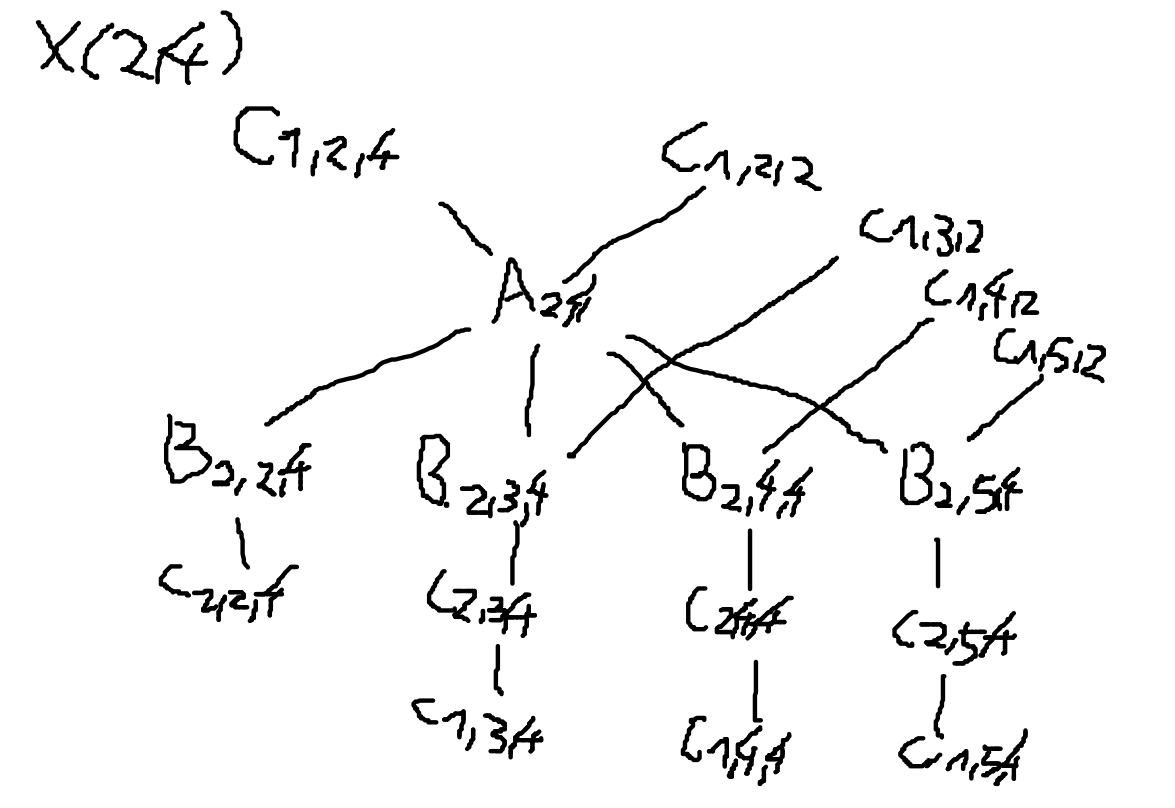 X(2,4)
C1,2,4
C1,2,2
C1,3,2
A2,1
C1,4,2
C1,5,2
B2,2,4
B2,3,4
B2,4,4
B2,5,4
C2,2,4
C2,3,4
C2,4,4
C2,5,4
C1,3,4
C1,4,4
C1,5,4